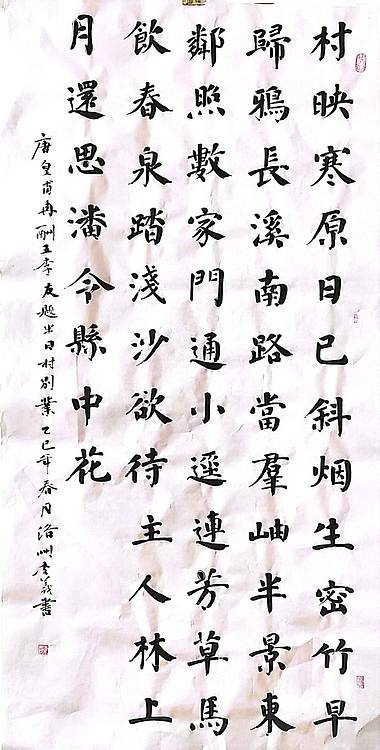 村映寒原日已斜烟生密竹早
歸鴉長溪南路當羣岫半景東
鄰照數家門通小逕連芳草馬
飲春泉踏淺沙欲待主人林上
月還思潘令縣中花
唐皇甫冉酬王李友題半日村別業乙巳年春月洛州書